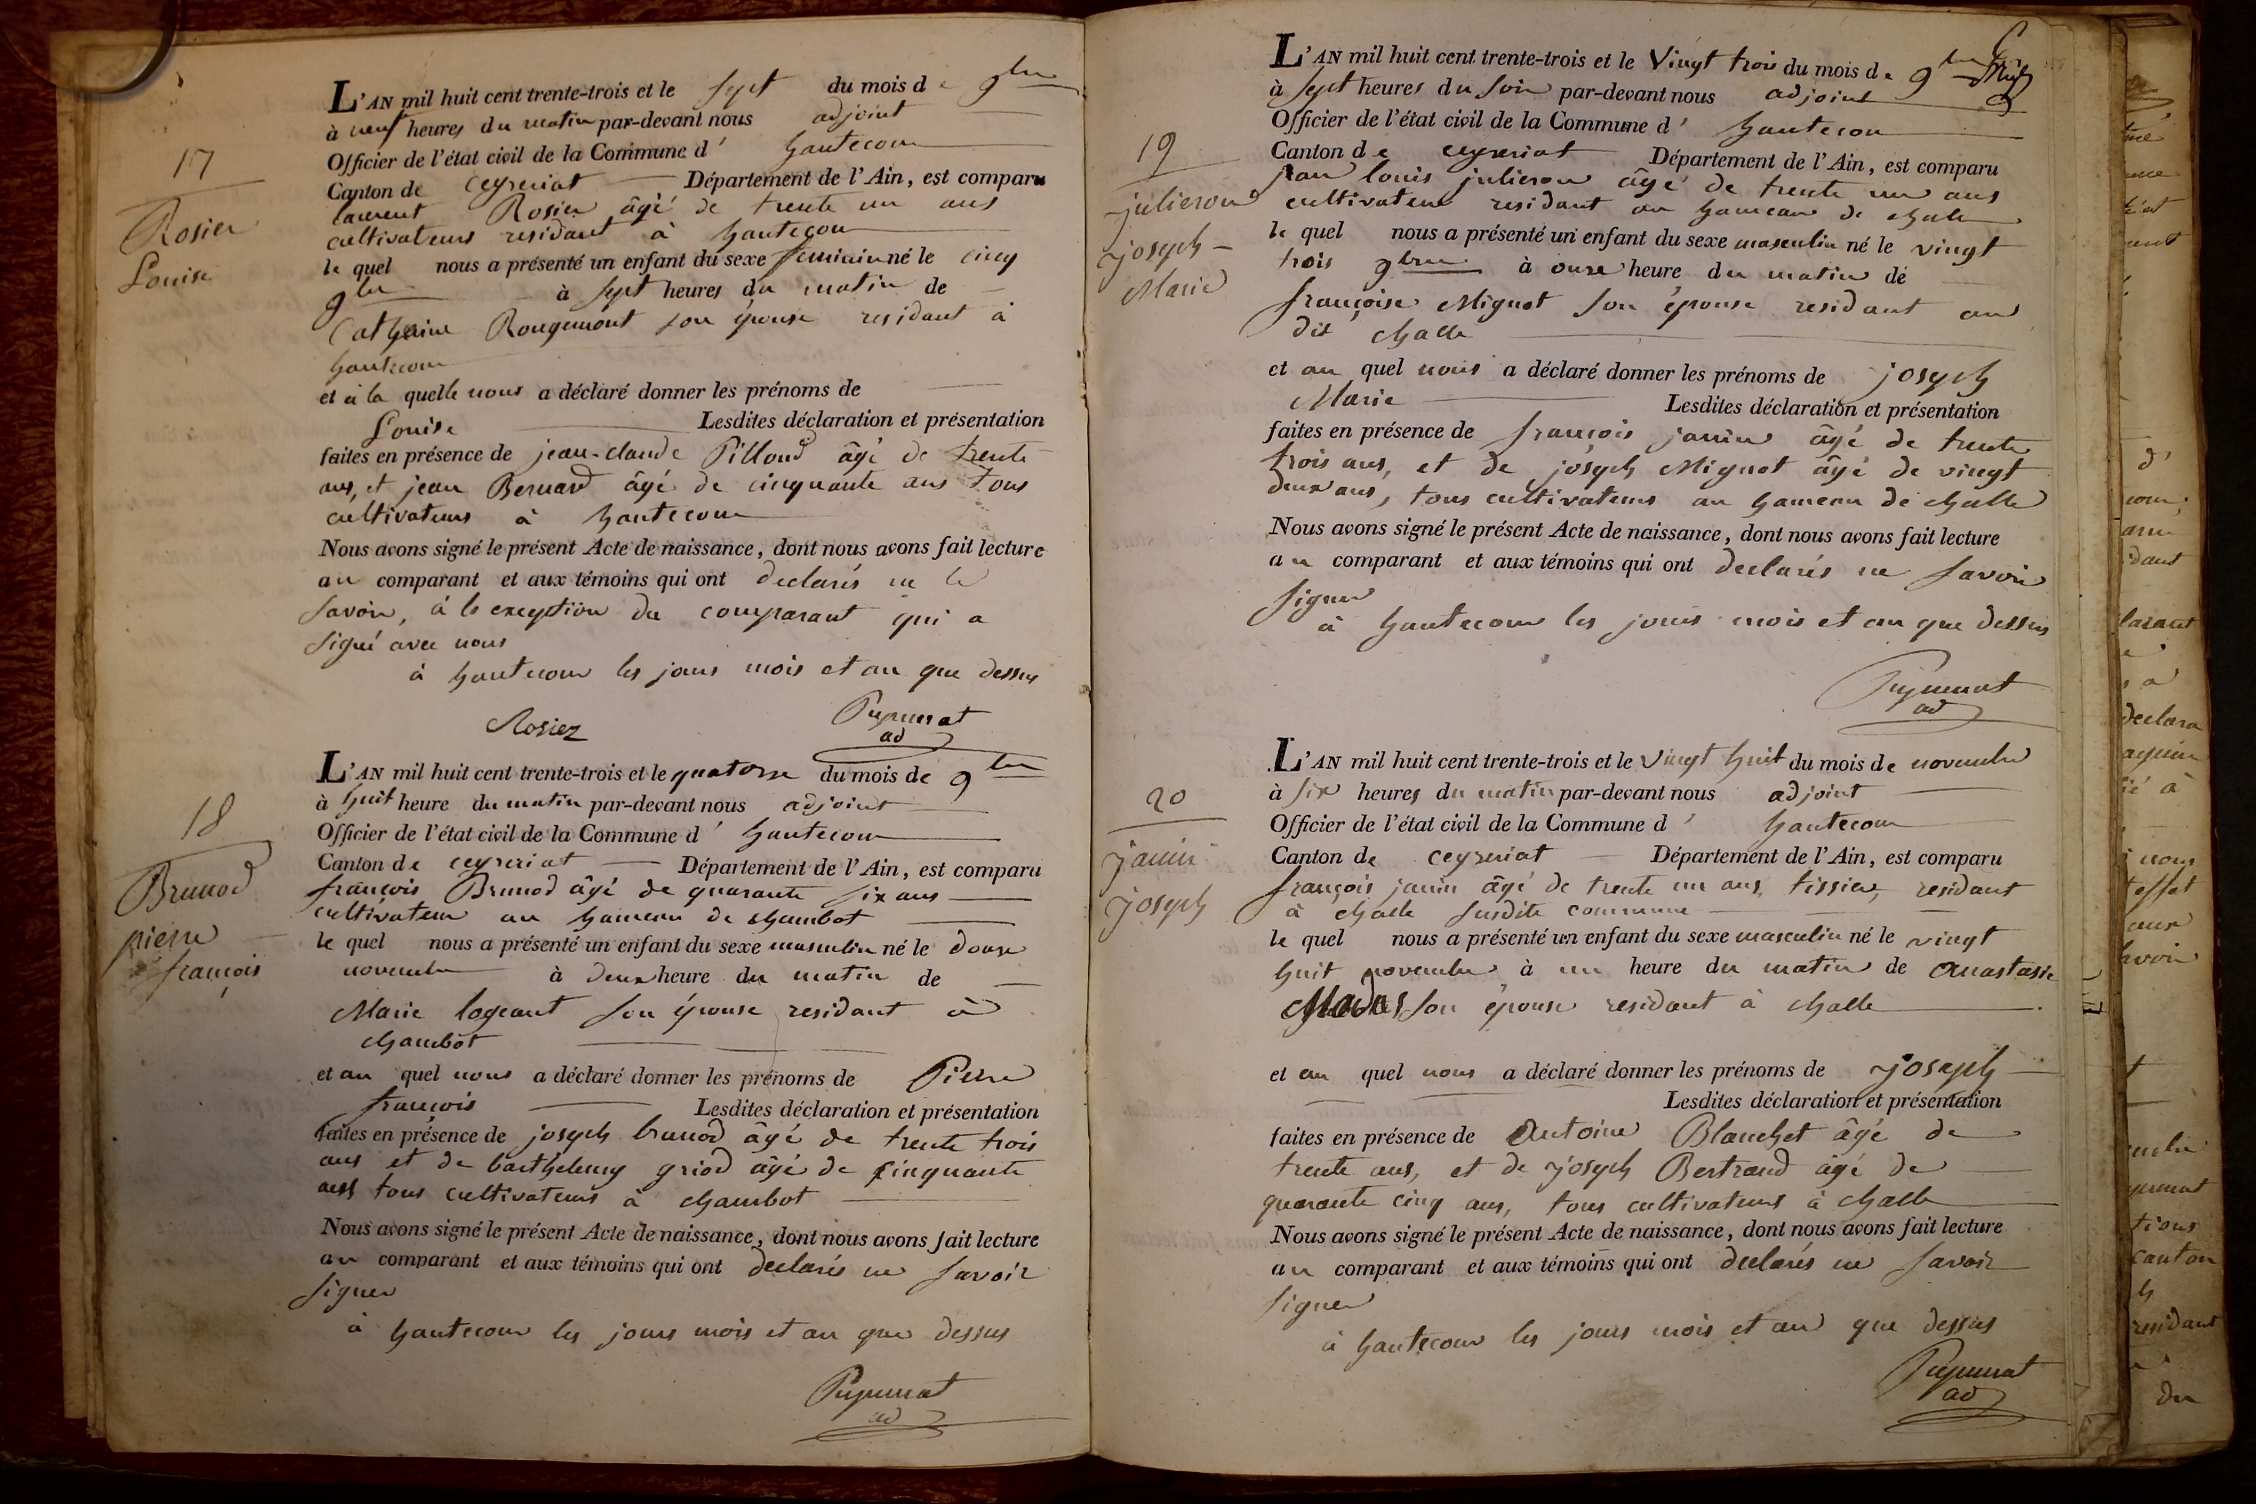 17
Rosier
Louise
L'AN mil huit cent trente-trois et le sept du mois de 9bre
à neuf heures du matin par-devant nous adjoint
Officier de l'état civil de la Commune d' hautecour
Canton de ceyzeriat Département de l'Ain, est comparu
laurent Rosier âgé de trente un ans
cultivateurs residant à hautecour
le quel nous a présenté un enfant du sexe feminin né le cinq
9bre à sept heures du matin de
Catherine Rougemont son épouse residant à
hautecour
et à la quelle nous a déclaré donner les prénoms de
Louise Lesdites déclaration et présentation
faites en présence de jean-claude Pilloud âgé de trente
ans, et jean Bernard âgé de cinquante ans tous
cultivateurs à hautecour
Nous avons signé le présent Acte de naissance, dont nous avons fait lecture
au comparant et aux témoins qui ont declarés ne le
savoir, à le exception du comparant qui a
signé avec nous
à hautecour les jours mois et an que dessus
Rosiez Pupunat
ad
18
Brunod
pierre
françois
L'AN mil huit cent trente-trois et le quatorse du mois de 9bre
à huit heure du matin par-devant nous adjoint
Officier de l'état civil de la Commune d' hautecour
Canton de ceyzeriat Département de l'Ain, est comparu
françois Brunod âgé de quarante six ans
cultivateur au hameau de chambot
le quel nous a présenté un enfant du sexe masculin né le douse
novembre à deux heure du matin de
Marie logeant son épouse residant à
chambot
et au quel nous a déclaré donner les prénoms de Pierre
françois Lesdites déclaration et présentation
faites en présence de joseph brunod âgé de trente trois
ans et de barthelemy griod âgé de cinquante
ans tous cultivateurs à chambot
Nous avons signé le présent Acte de naissance, dont nous avons fait lecture
au comparant et aux témoins qui ont declarés ne savoir
signer
à hautecour les jours mois et an que dessus
Pupunat
ad
19
julieron
joseph
Marie
L'AN mil huit cent trente-trois et le vingt trois du mois de 9bre
à sept heures du soir par-devant nous adjoint
Officier de l'état civil de la Commune d' hautecour
Canton de ceyzeriat Département de l'Ain, est comparu
jean louis julieron âgé de trente un ans
cultivateur residant au hameau de challe
le quel nous a présenté un enfant du sexe masculin né le vingt
trois 9bre à onze heure du matin de
françoise Mignot son épouse residant au
dit challe
et au quel nous a déclaré donner les prénoms de joseph
Marie Lesdites déclaration et présentation
faites en présence de françois janin âgé de trente
trois ans, et de joseph Mignot âgé de vingt
deux ans, tous cultivateurs au hameau de challe
Nous avons signé le présent Acte de naissance, dont nous avons fait lecture
au comparant et aux témoins qui ont declarés ne savoir
signer
à hautecour les jours mois et an que dessus
Pupunat
ad
20
janin
joseph
L'AN mil huit cent trente-trois et le vingt huit du mois de novembre
à six heures du matin par-devant nous adjoint
Officier de l'état civil de la Commune d' hautecour
Canton de ceyzeriat Département de l'Ain, est comparu
françois janin âgé de trente un ans, tissier, residant
à challe susdite commune
le quel nous a présenté un enfant du sexe masculin né le vingt
huit novembre à un heure du matin de anastasie
son épouse residant à challe
et au quel nous a déclaré donner les prénoms de joseph
Lesdites déclaration et présentation
faites en présence de antoine Blanchet âgé de
trente ans, et de joseph Bertrand âgé de
quarante cinq ans, tous cultivateurs à challe
Nous avons signé le présent Acte de naissance, dont nous avons fait lecture
au comparant et aux témoins qui ont declarés ne savoir
signer
à hautecour les jours mois et an que dessus
Pupunat
ad